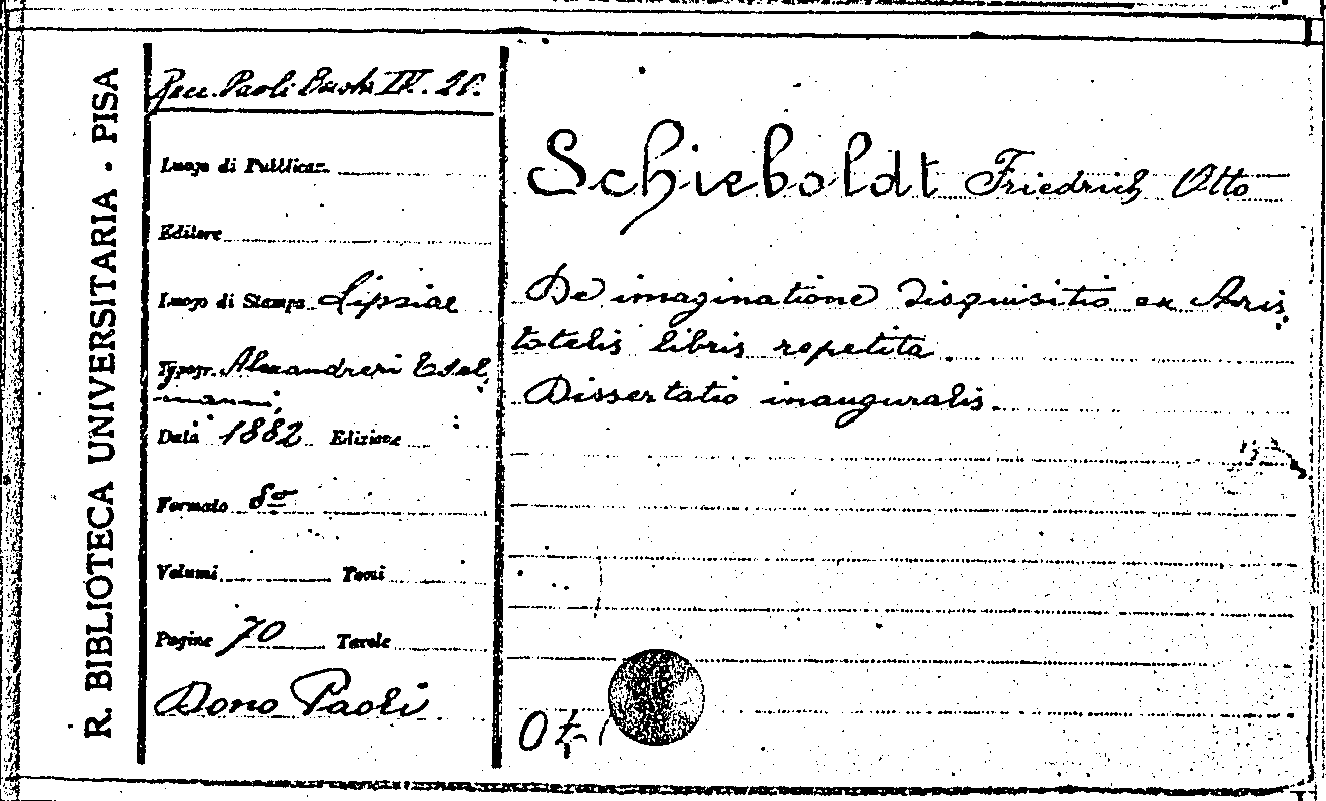 R. BIBLIOTECA UNIVERSITARIA - PISA
Paoli IV. 20.
Luogo di Pubblicaz.
Editore
Luogo di Stampa Lipsiae
Typogr. Alexandreri Edel-
manni,
Data 1882 Edizione
Formato 8º
Volumi Tomi
Pagine 70 Tavole
Dono Paoli
Schieboldt Friedrich Otto
De imaginatione disquisitio ex Aris-
totelis libris repetita.
Dissertatio inauguralis.